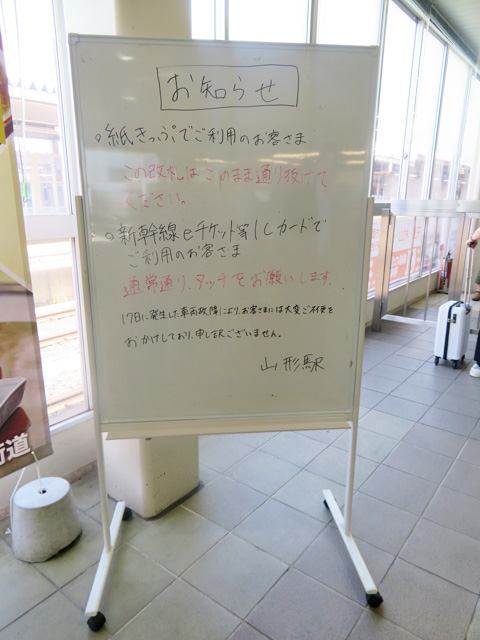 お知らせ
○紙きっぷでご利用のお客さま
この改札はこのまま通り抜けて
ください。
○新幹線eチケット等ICカードで
ご利用のお客さま
通常通り、タッチをお願いします。
17日に発生した車両故障により、お客さまには大変ご不便を
おかけしており、申し訳ございません。
山形駅
街道